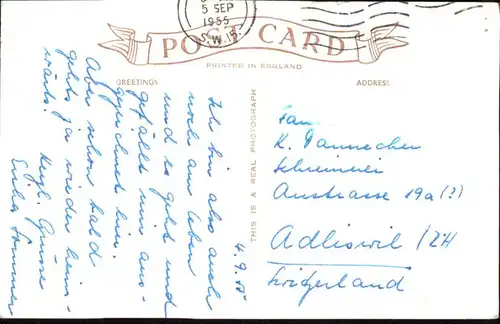 5 SEP
1955
S.W.15.
POST CARD
PRINTED IN ENGLAND
GREETINGS
ADDRESS
THIS IS A REAL PHOTOGRAPH
4.9.55
Ich bin also auch
noch am Leben
und es geht und
gefällt mir aus-
gezeichnet hier.
Aber schon bald
gehts ja wieder heim-
wärts.
Herzl. Grüsse
Erika Sommer
Fam.
K. Dannecker
Schreinerei
Austrasse 19a (?)
Adliswil / ZH
Switzerland